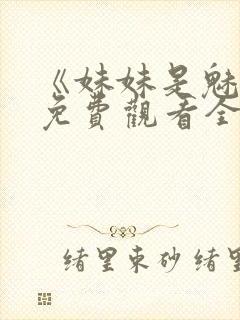 《妹妹是魅
免費觀看全
緒里束砂 緒里